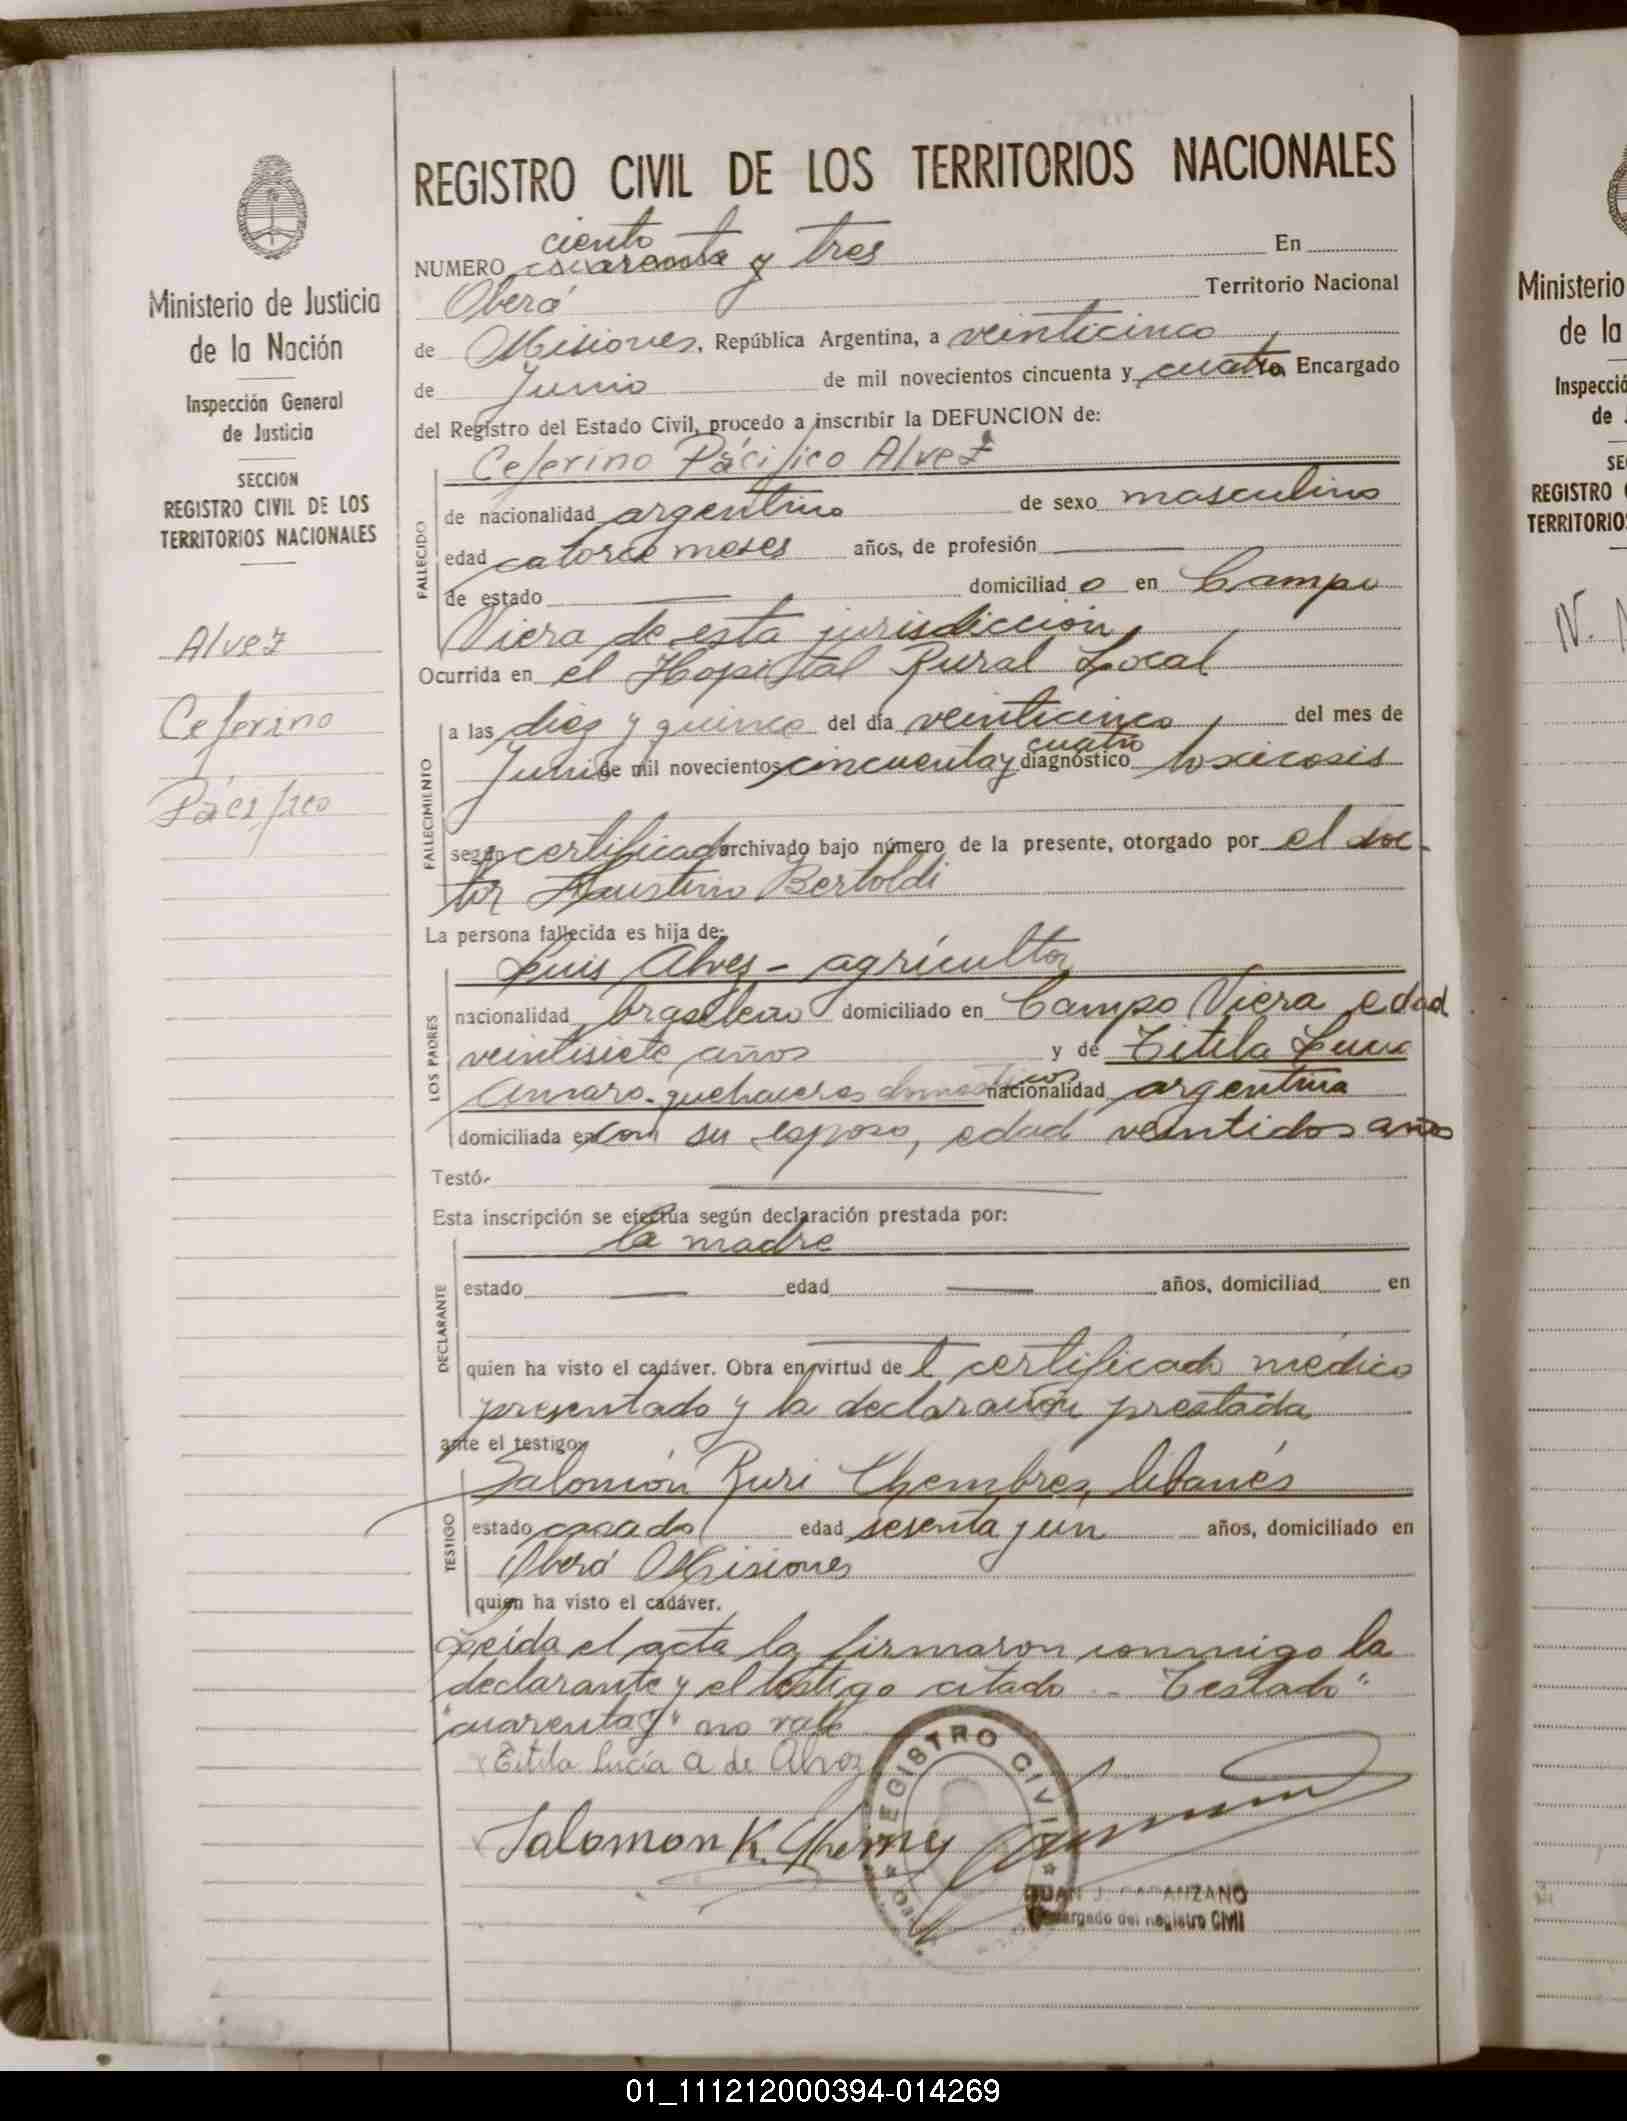 REGISTRO CIVIL DE LOS TERRITORIOS NACIONALES
Ministerio de Justicia
de la Nación
Inspección General
de Justicia
SECCION
REGISTRO CIVIL DE LOS
TERRITORIOS NACIONALES
Alvez
Ceferino
Pácifico
ciento
NUMERO cuarenta y tres En
Oberá Territorio Nacional
de Misiones, República Argentina, a veinticinco
de Junio de mil novecientos cincuenta y cuatro Encargado
del Registro del Estado Civil, procedo a inscribir la DEFUNCION de:
Ceferino Pácifico Alvez
FALLECIDO
de nacionalidad argentino de sexo masculino
edad catorce meses años, de profesión
de estado domiciliad o en Campo
Viera de esta jurisdiccion,
Ocurrida en el Hopistal Rural Local
FALLECIMIENTO
a las diez y quince del día veinticinco, del mes de
Junio de mil novecientos cincuenta y cuatro diagnóstico toxicosis
según certificado archivado bajo número de la presente, otorgado por el doc-
tor Faustino Bertoldi
La persona fallecida es hija de:
LOS PADRES
Luis Alvez - agrícultor
nacionalidad brasilero domiciliado en Campo Viera edad
veintisiete años y de Titila Lucia
Amaro - quehaceres domesticos nacionalidad argentina
domiciliada en con su esposo, edad veintidos años
Testó
Esta inscripción se efectúa según declaración prestada por:
DECLARANTE
la madre
estado edad años, domiciliad en
quien ha visto el cadáver. Obra en virtud de l certificado médico
presentado y la declaración prestada
ante el testigo:
TESTIGO
Salomón Ruri Chembres, libanés
estado casado edad sesenta y un años, domiciliado en
Oberá Misiones
quien ha visto el cadáver.
Leída el acta la firmaron conmigo la
declarante y el testigo citado - Testado "
"cuarenta y" no vale
x Titila Lucía A de Alvez
Salomon K.
REGISTRO CIVIL
JUAN J. CARANZANO
Encargado del Registro Civil
Ministerio
de la
REGISTRO
TERRITORIO
01_111212000394-014269